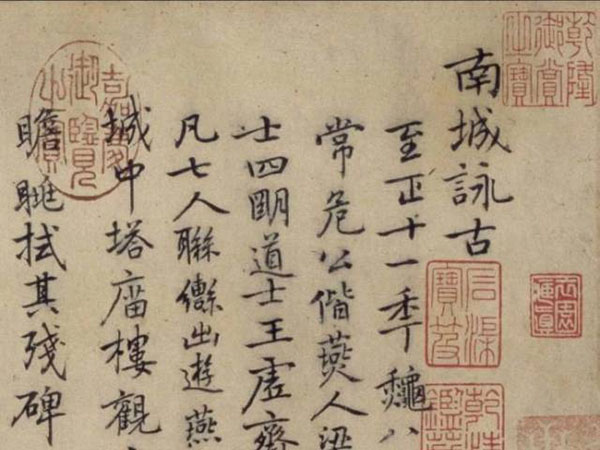 乾隆御賞之寶
南城詠古
至正十一秊龝八
常危公偕燕人梁
士四朙道士王虛齋
凡七人聯轡出遊燕
城中塔庿樓觀
瞻眺拭其殘碑
石渠寶笈
嘉慶御覽之寶